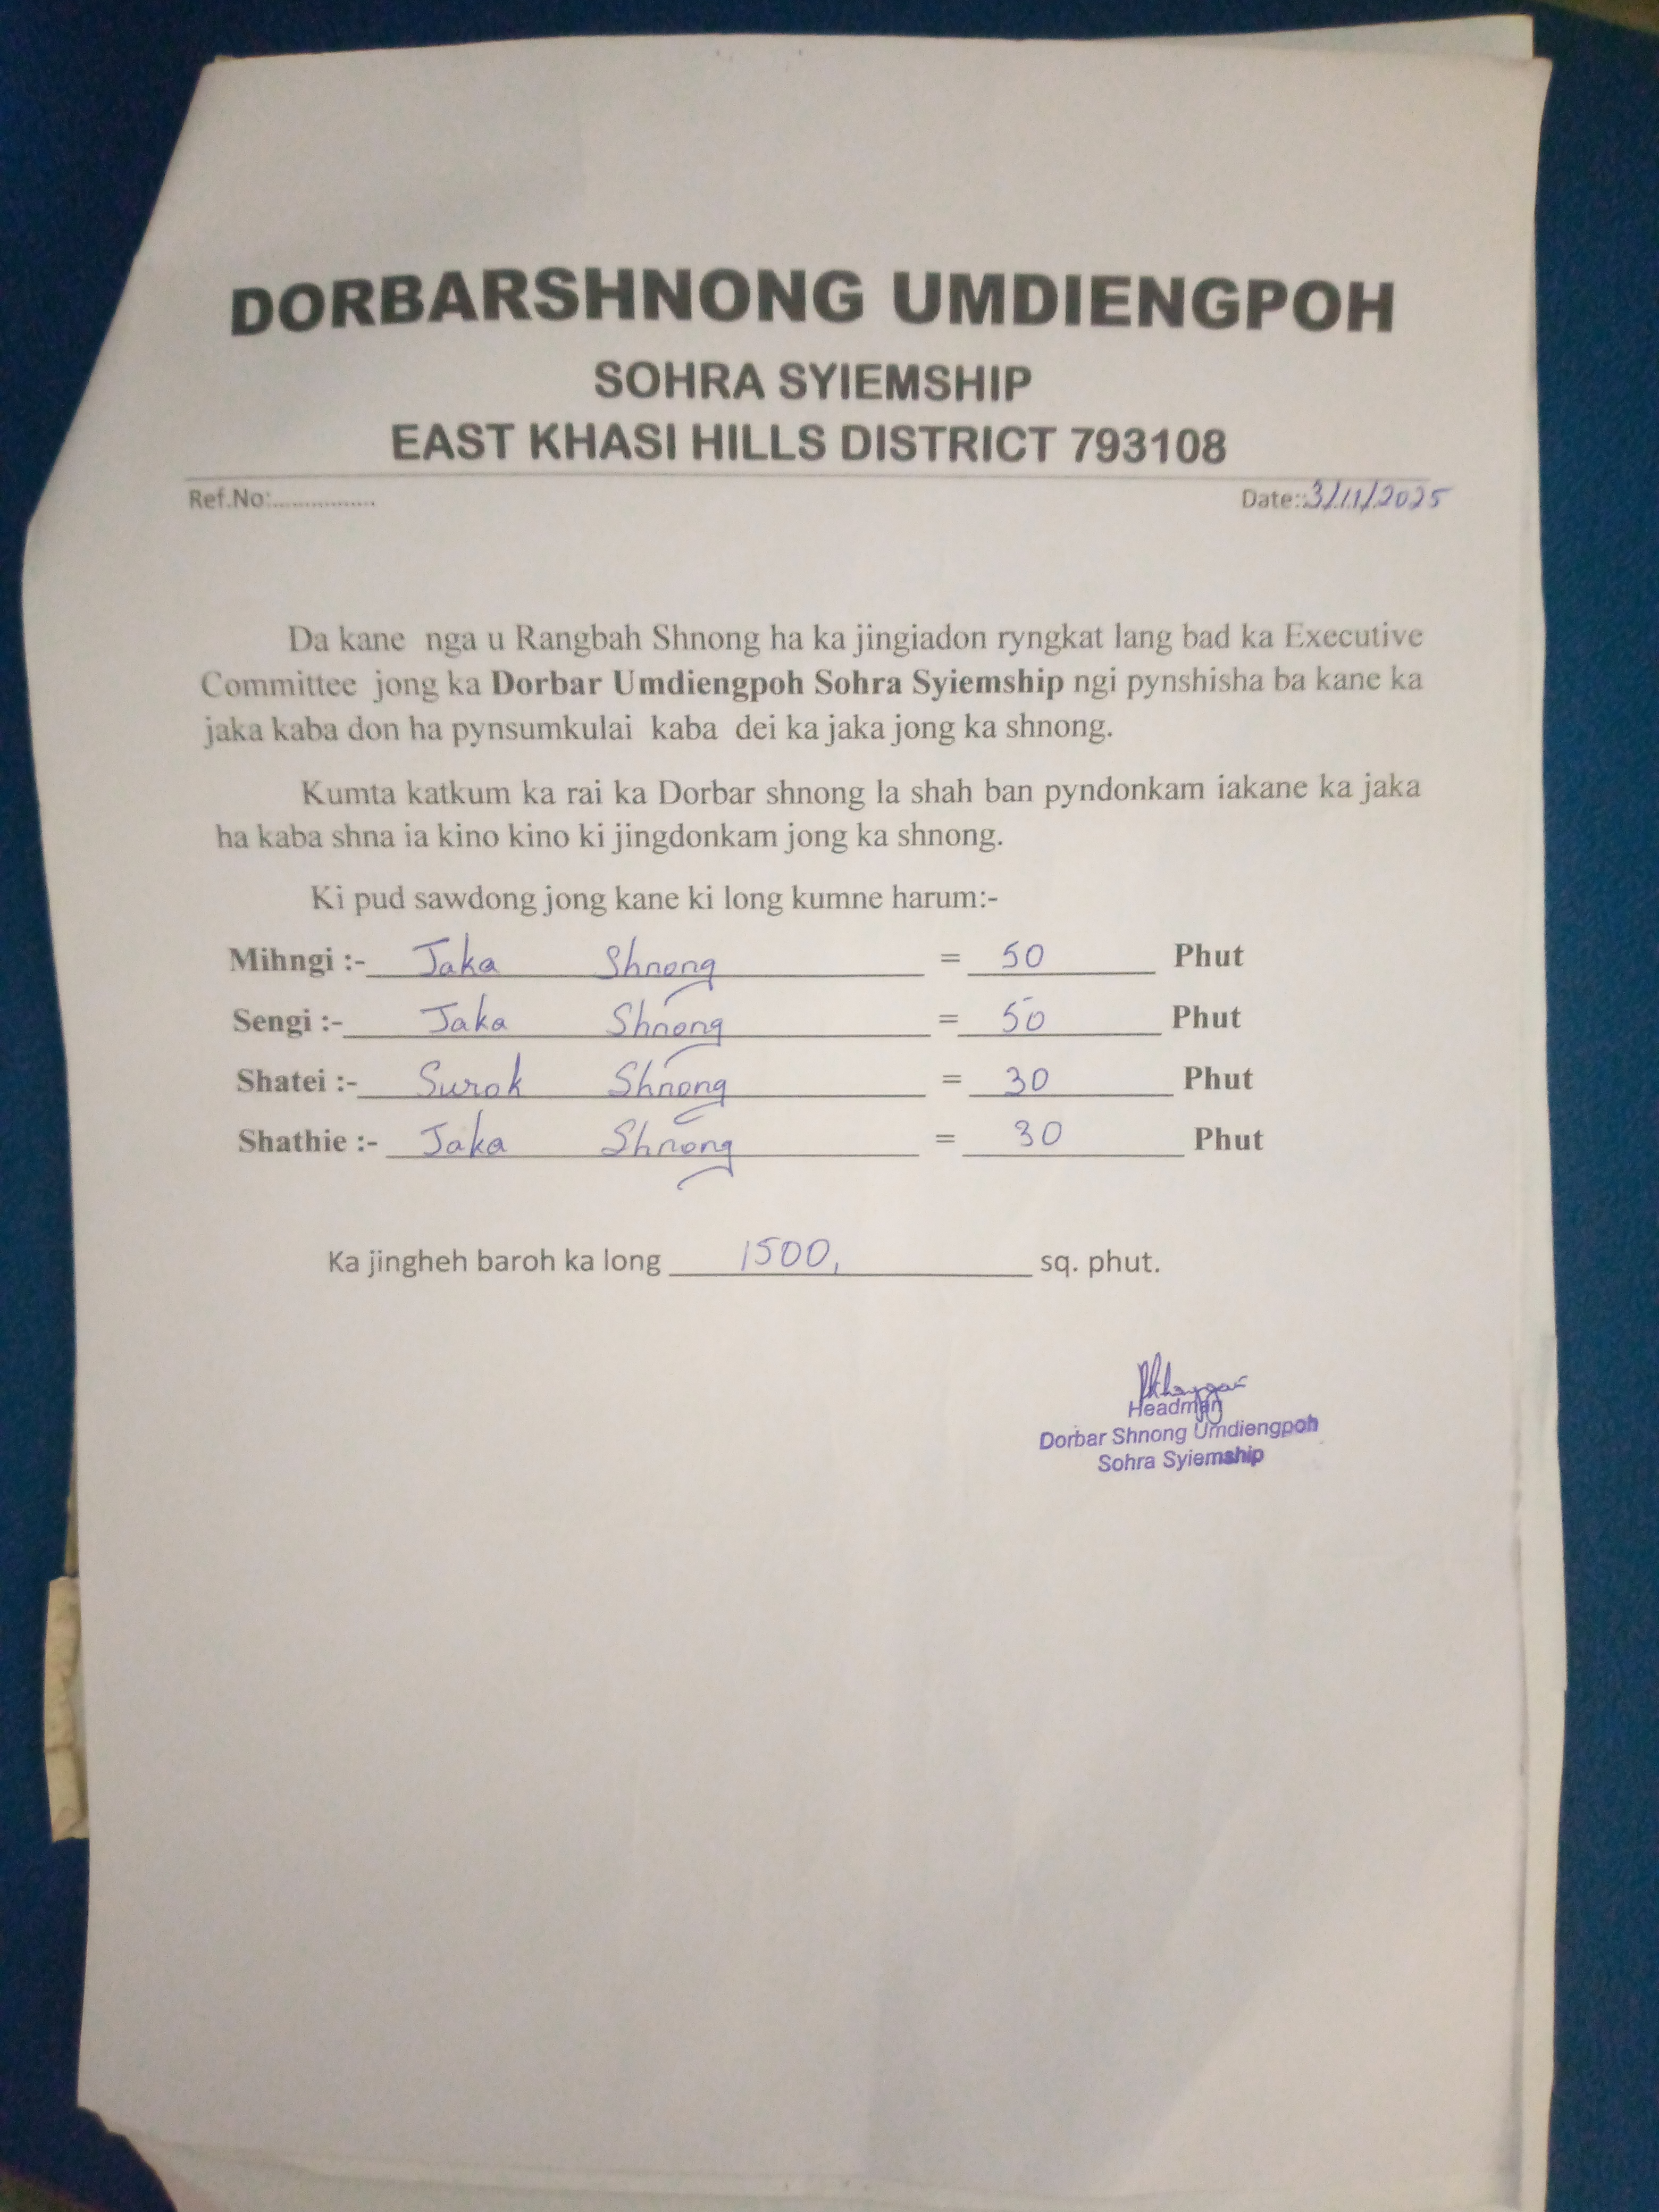 DORBARSHNONG UMDIENGPOH
SOHRA SYIEMSHIP
EAST KHASI HILLS DISTRICT 793108
Ref.No:................
Date:.3/11/2025
Da kane nga u Rangbah Shnong ha ka jingiadon ryngkat lang bad ka Executive
Committee jong ka Dorbar Umdiengpoh Sohra Syiemship ngi pynshisha ba kane ka
jaka kaba don ha pynsumkulai kaba dei ka jaka jong ka shnong.
Kumta katkum ka rai ka Dorbar shnong la shah ban pyndonkam iakane ka jaka
ha kaba shna ia kino kino ki jingdonkam jong ka shnong.
Ki pud sawdong jong kane ki long kumne harum:-
Mihngi :- Jaka Shnong = 50 Phut
Sengi :- Jaka Shnong = 50 Phut
Shatei :- Surok Shnong = 30 Phut
Shathie :- Jaka Shnong = 30 Phut
Ka jingheh baroh ka long 1500, sq. phut.
Headman
Dorbar Shnong Umdiengpoh
Sohra Syiemship